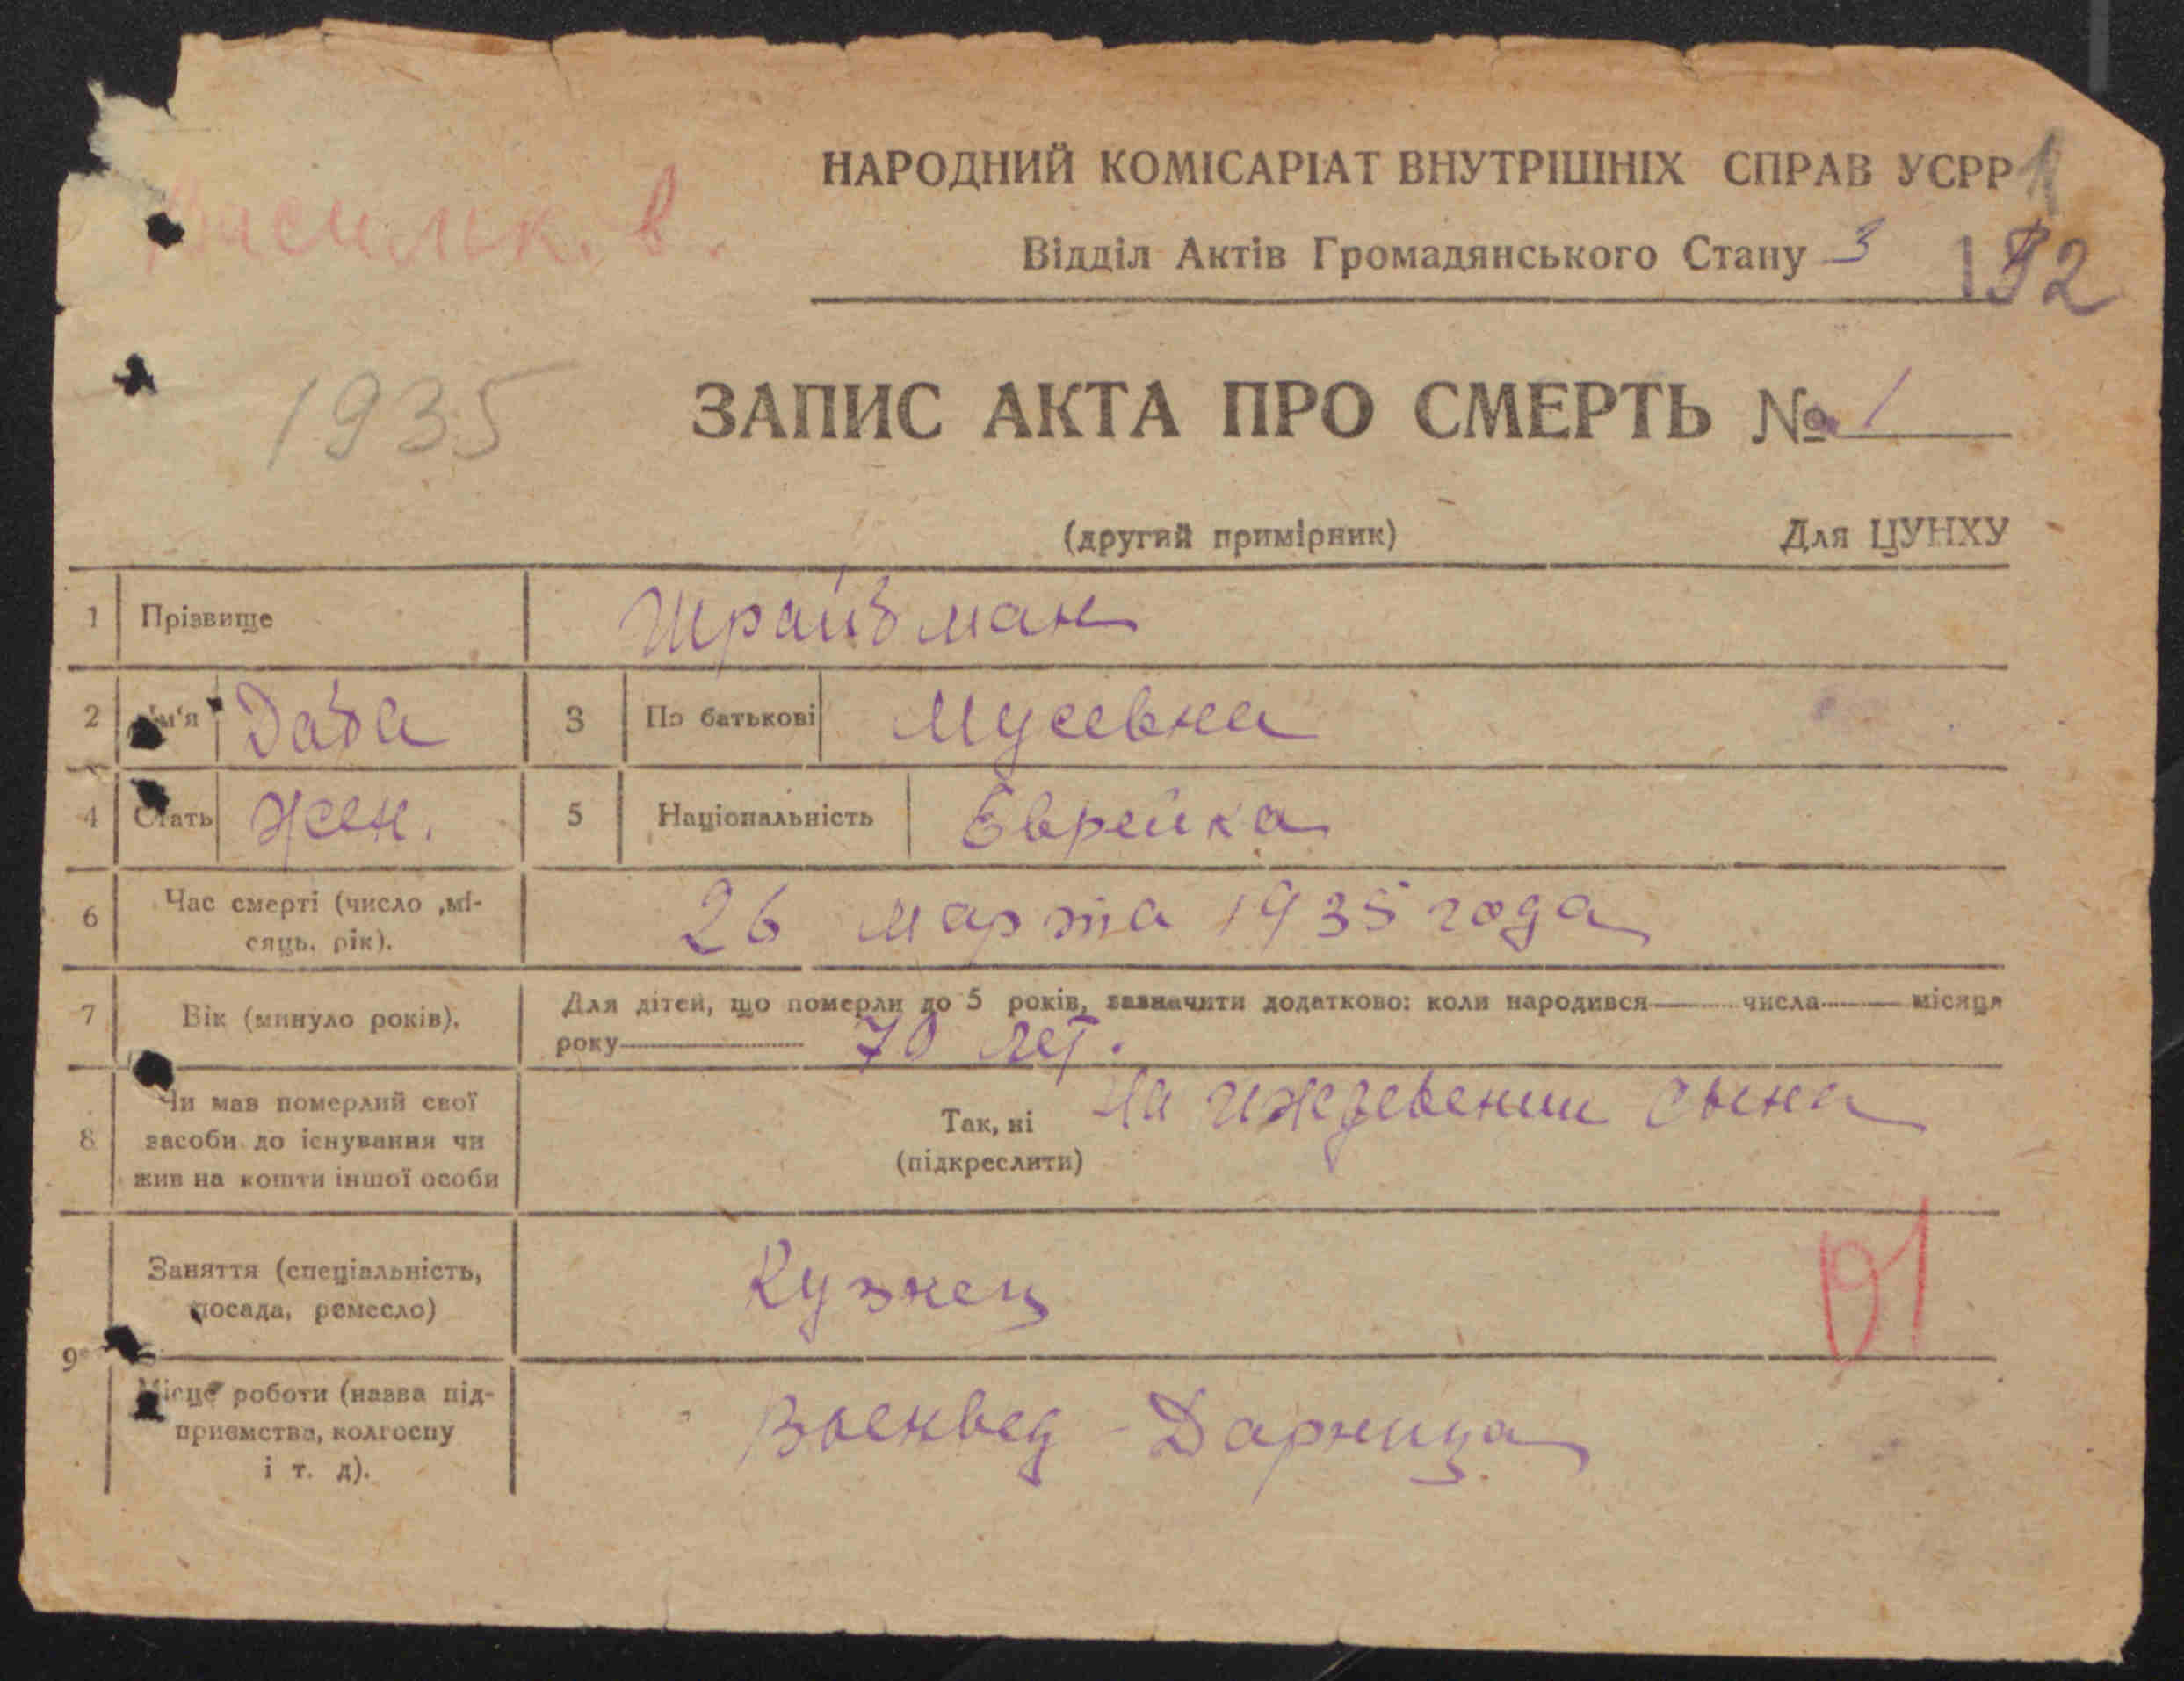 Васильк. в.
НАРОДНИЙ КОМІСАРІАТ ВНУТРІШНІХ СПРАВ УСРР
Відділ Актів Громадянського Стану 3
1935
ЗАПИС АКТА ПРО СМЕРТЬ № 1
(другий примірник) Для ЦУНХУ
1 Прізвище Шрайзман
2 Ім'я 3 По батькові Мусевна
4 Стать жен. 5 Національність Еврейка
6 Час смерті (число ,мі-
сяць, рік). 26 марта 1935 года
7 Вік (минуло років). Для дітей, що померли до 5 років, зазначити додатково: коли народився числа місяця
року 70 лет.
8 Чи мав померлий свої
засоби до існування чи
жив на кошти іншої особи
Так, ні
(підкреслити) На иждевении сына
9 Заняття (спеціальність,
посада, ремесло) Кузнец
01
Місце роботи (назва під-
приємства, колгоспу
і т. д). Военвед - Дарница